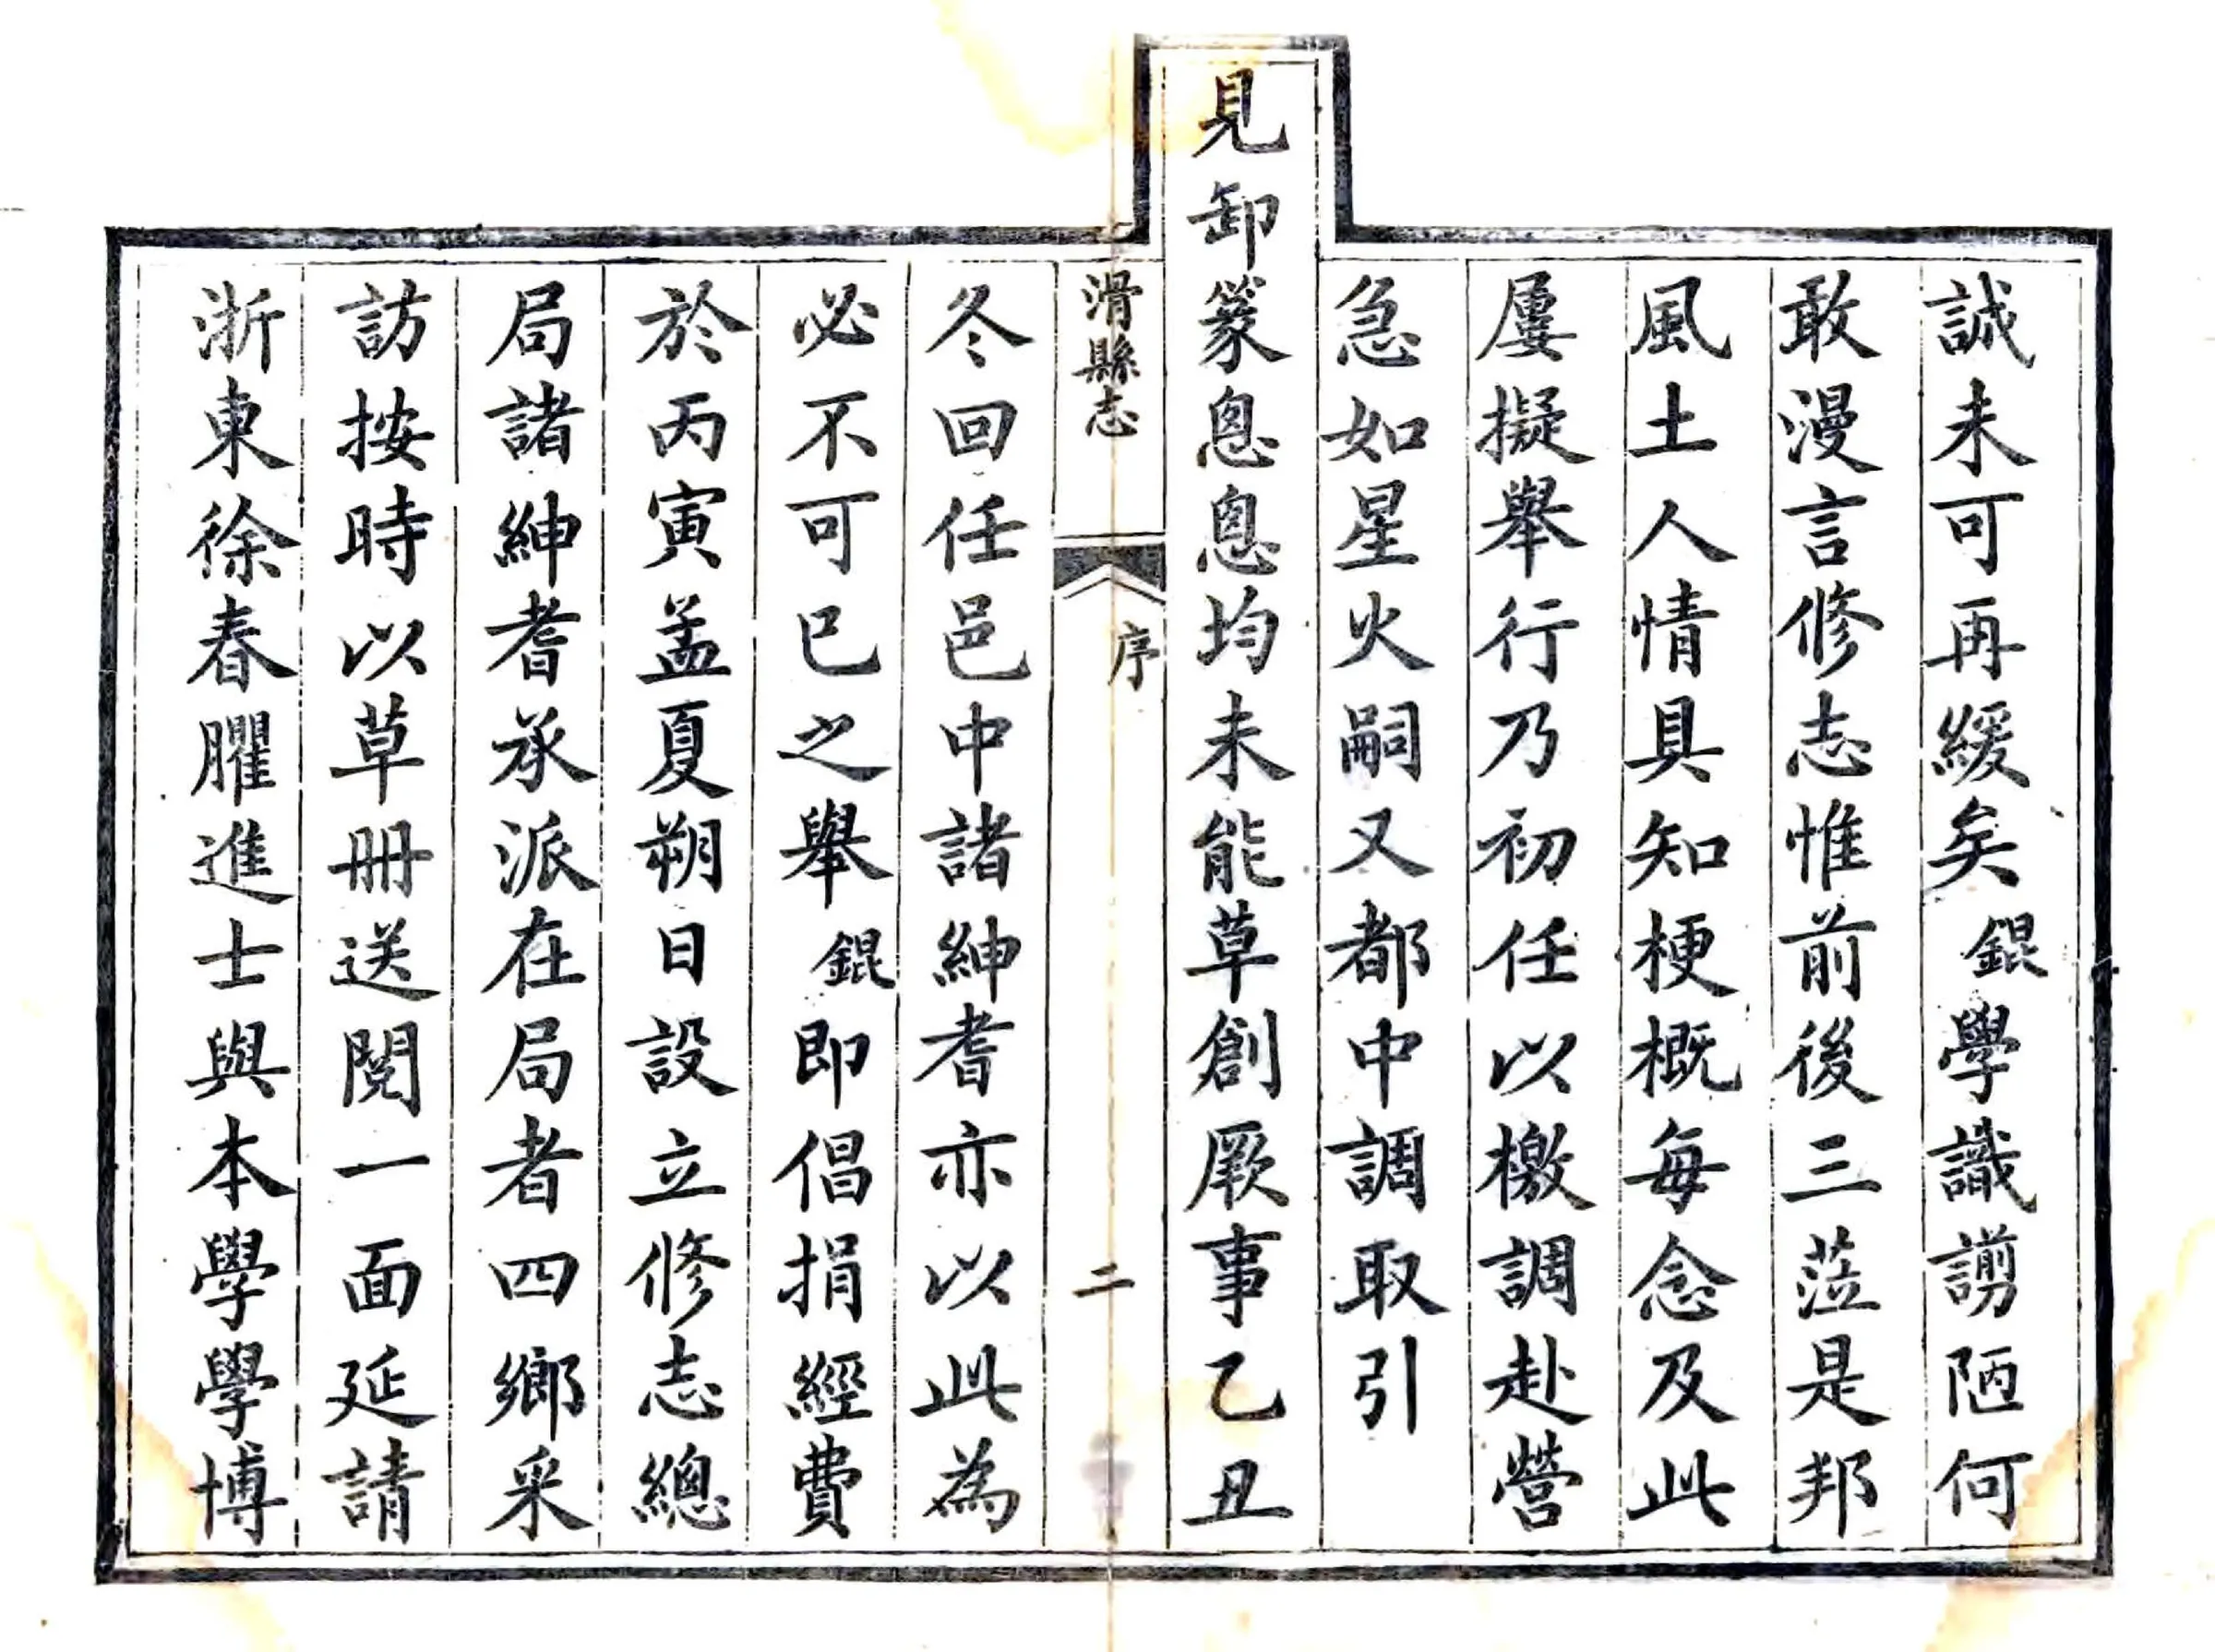 誠未可再緩矣錕學識譾陋何
敢漫言修志惟前後三蒞是邦
風土人情具知梗概每念及此
屢擬舉行乃初任以檄調赴營
急如星火嗣又都中調取引
見卸篆悤悤均未能草創厥事乙丑
滑縣志
序
二
冬回任邑中諸紳耆亦以此為
必不可已之舉錕即倡捐經費
於丙寅孟夏朔日設立修志總
局諸紳耆承派在局者四鄉采
訪按時以草冊送閱一面延請
浙東徐春臞進士與本學學博